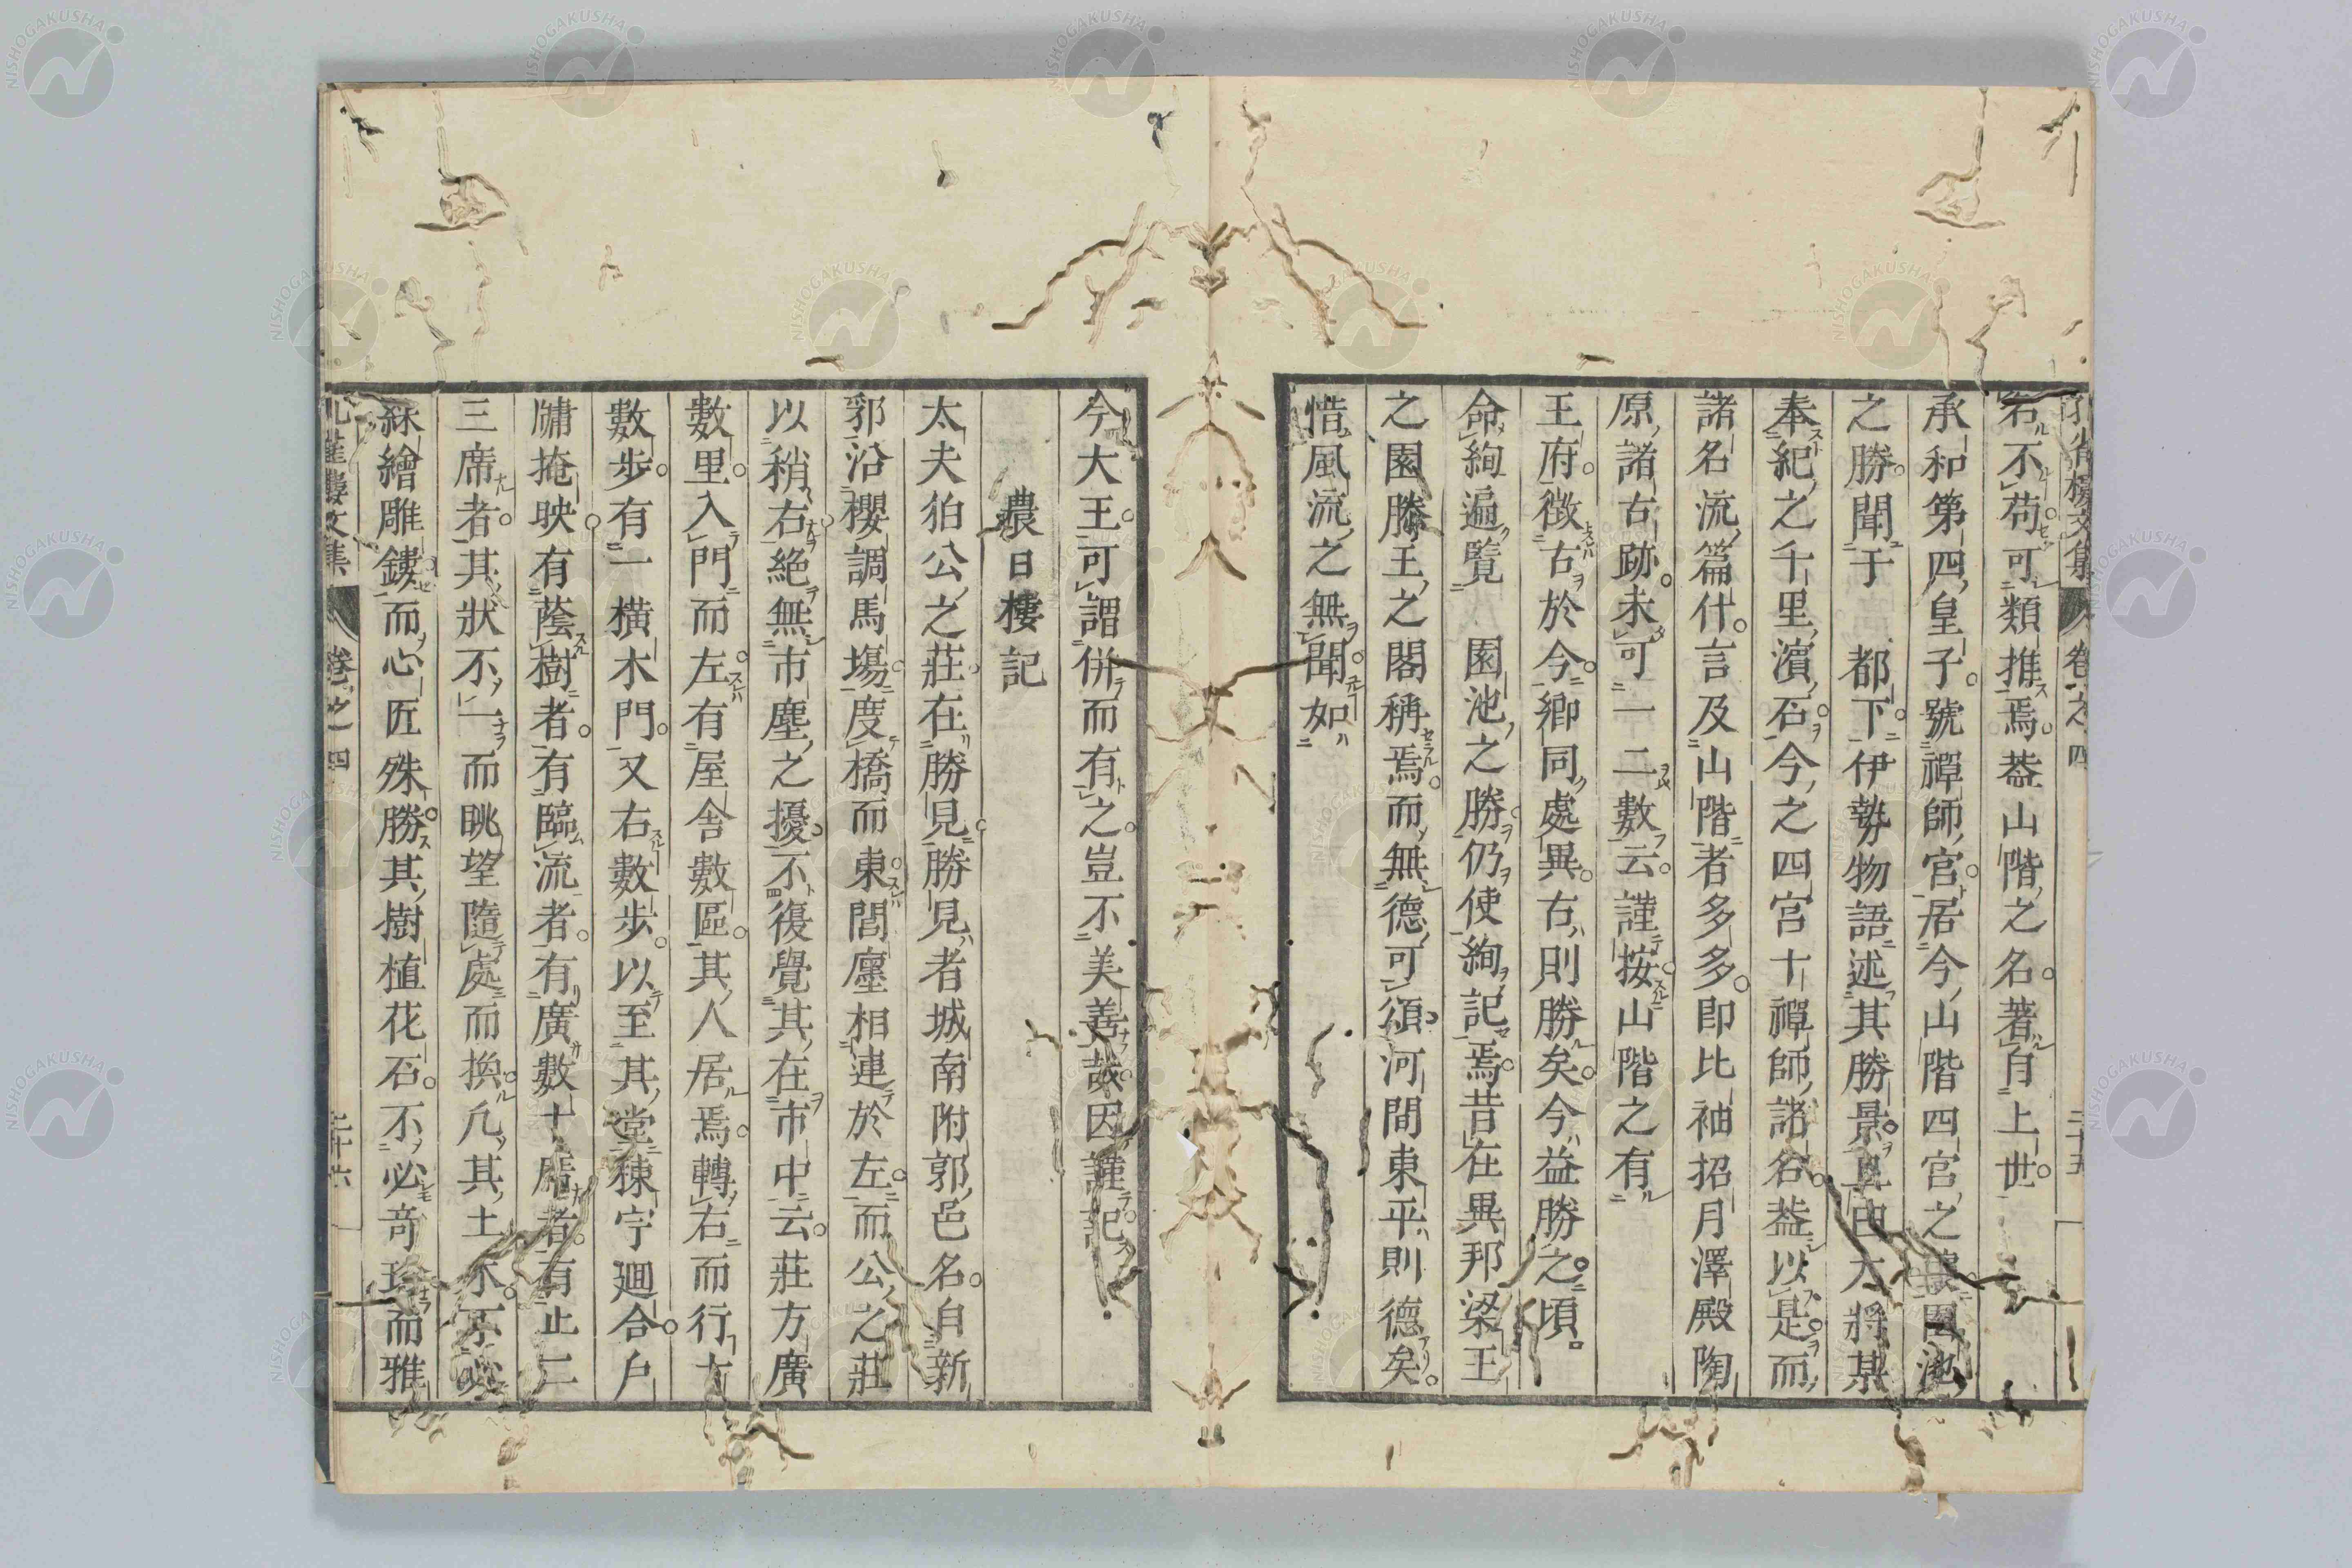 名不苟可類推焉。蓋山階之名。著自上世。
承和第四皇子。號禪師宮。居今山階四宮之園池
之勝。聞于 都下。伊勢物語述其勝景。且由大將某
奉紀之千里濱石。今之四宮十禪師諸名蓋以是而
諸名流篇什。言及山階者多多。即比袖招月澤殿陶
原諸古跡。未可一二數云。謹按山階之有
王府。徵古於今。鄉同處異。古則勝矣。今益勝之。頃。
命絢遍覽 園池之勝。仍使絢記焉。昔在異邦梁王
之園滕王之閣稱焉。而無德可頌。河間東平則德矣。
惜風流之無聞。如
今大王。可謂併而有之。豈不美善哉。因謹記。
農日樓記
太夫伯公之莊在勝見。勝見者城南附郭邑名。自新
郭沿櫻調馬場。度橋而東。閭廛相連於左。而公之莊
以稍右絕無市塵之擾。不復覺其在市中云。莊方廣
數里。入門而左。有屋舍數區。其人居焉。轉右而行
數步。有一横木門。又右數步。以至其堂。棟宇廻合。戶
牖掩映。有蔭樹者。有臨流者。有廣數十席者。有止二
三席者。其狀不一。而眺望隨處而換。凡其土木。不必
綵繪雕鏤。而心匠殊勝。其樹植花石。不必奇珍而雅
卷之四
三十五
卷之四